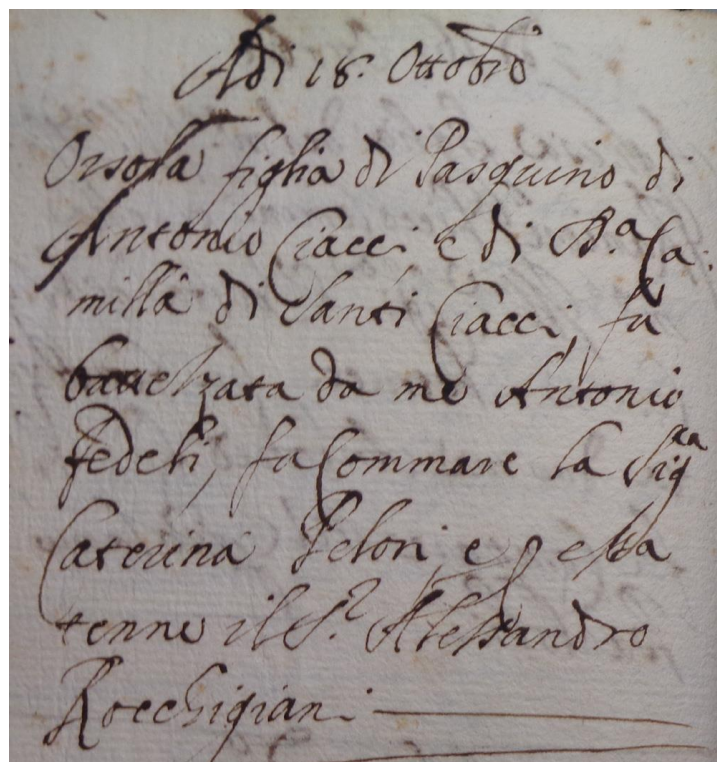 Adi 18. Ottobre
Orsola figlia di Pasquino di
Antonio Ciacci, e di D.a Ca:
milla di Santi Ciacci, fu
battezata da me Antonio
Fedeli, fu Commare la Sig.ra
Caterina Pelori, e p essa
tenne il S.r Alessandro
Rocchigiani.